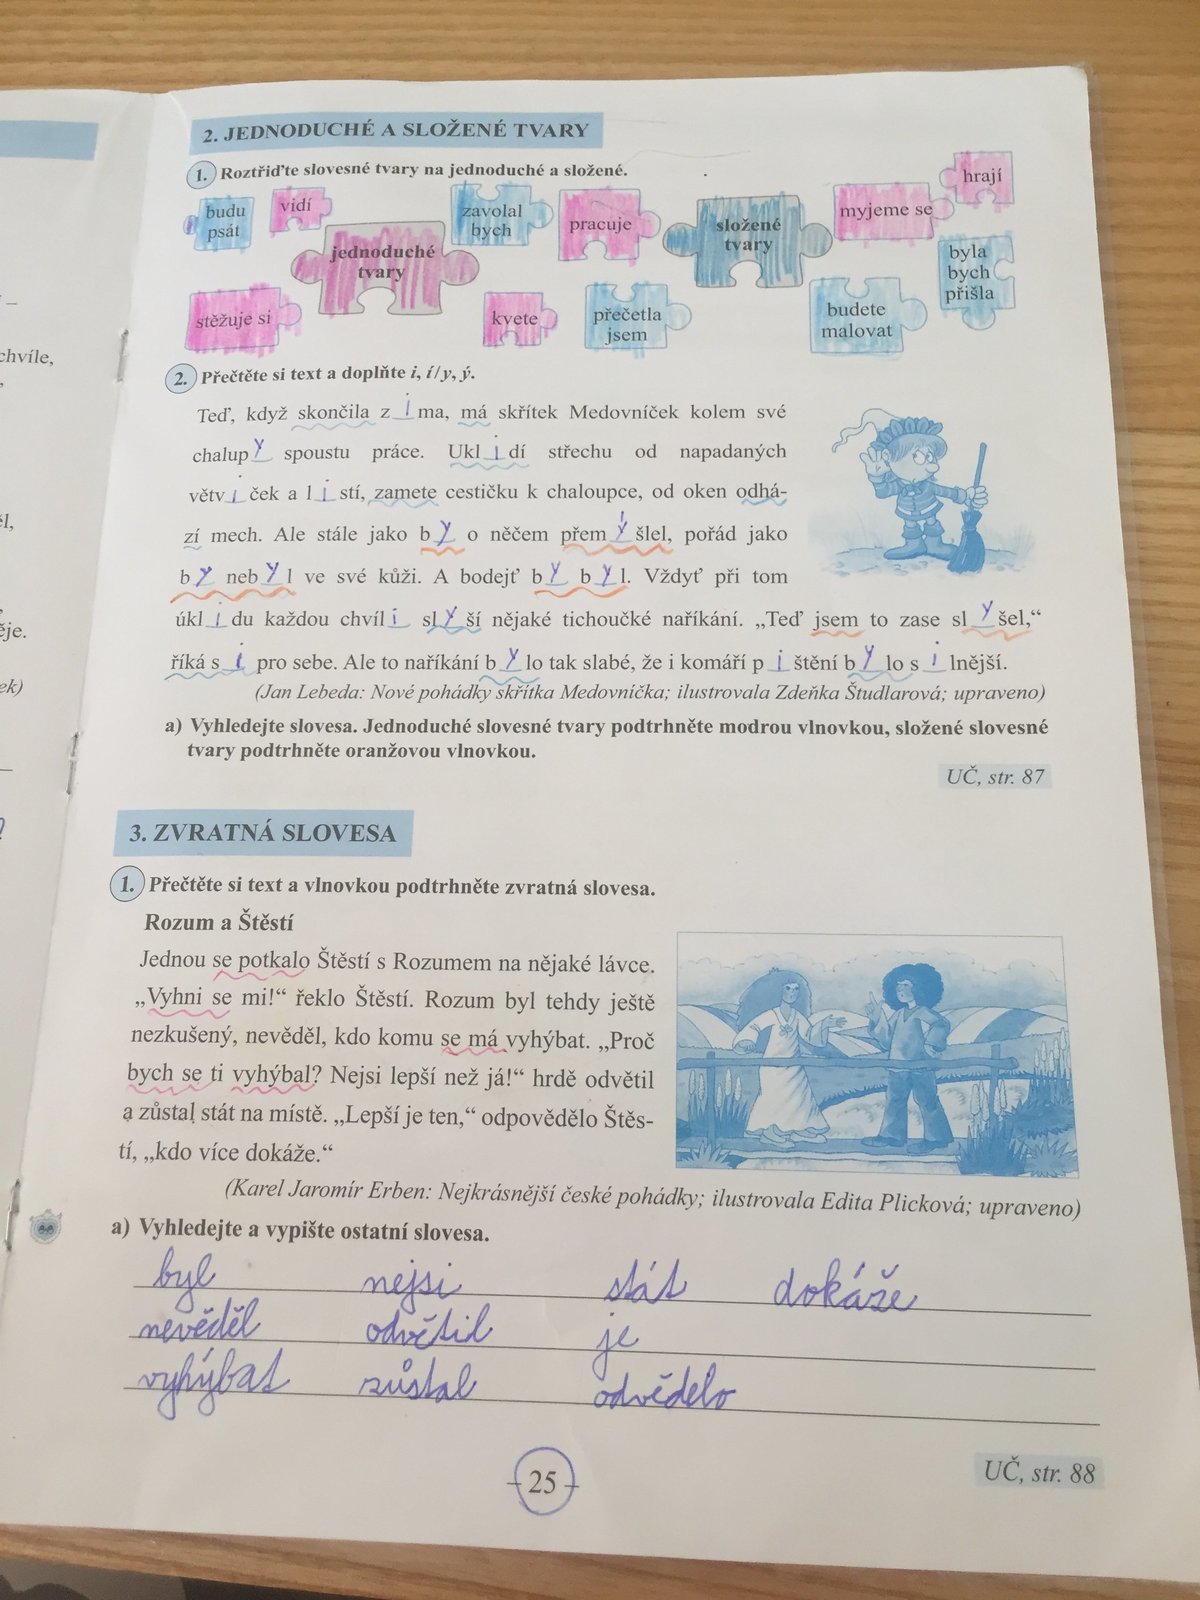 2. JEDNODUCHÉ A SLOŽENÉ TVARY
1. Roztřiďte slovesné tvary na jednoduché a složené.
budu psát
vidí
jednoduché tvary
zavolal bych
pracuje
složené tvary
myjeme se
hrají
stěžuje si
kvete
přečetla jsem
budete malovat
byla bych přišla
2. Přečtěte si text a doplňte i, í/y, ý.
Teď, když skončila z i ma, má skřítek Medovníček kolem své
chalup y spoustu práce. Ukl i dí střechu od napadaných
větv i ček a l i stí, zamete cestičku k chaloupce, od oken odhá-
zí mech. Ale stále jako b y o něčem přem ý šlel, pořád jako
b y neb y l ve své kůži. A bodejť b y b y l. Vždyť při tom
úkl i du každou chvíl i sl y ší nějaké tichoučké naříkání. „Teď jsem to zase sl y šel,“
říká s i pro sebe. Ale to naříkání b y lo tak slabé, že i komáří p i štění b y lo s i lnější.
(Jan Lebeda: Nové pohádky skřítka Medovníčka; ilustrovala Zdeňka Študlarová; upraveno)
a) Vyhledejte slovesa. Jednoduché slovesné tvary podtrhněte modrou vlnovkou, složené slovesné
tvary podtrhněte oranžovou vlnovkou.
UČ, str. 87
3. ZVRATNÁ SLOVESA
1. Přečtěte si text a vlnovkou podtrhněte zvratná slovesa.
Rozum a Štěstí
Jednou se potkalo Štěstí s Rozumem na nějaké lávce.
„Vyhni se mi!“ řeklo Štěstí. Rozum byl tehdy ještě
nezkušený, nevěděl, kdo komu se má vyhýbat. „Proč
bych se ti vyhýbal? Nejsi lepší než já!“ hrdě odvětil
a zůstal stát na místě. „Lepší je ten,“ odpovědělo Štěs-
tí, „kdo více dokáže.“
(Karel Jaromír Erben: Nejkrásnější české pohádky; ilustrovala Edita Plicková; upraveno)
a) Vyhledejte a vypište ostatní slovesa.
byl nejsi stát dokáže
nevěděl odvětil je
vyhýbat zůstal odvědělo
25
UČ, str. 88
chvíle,
ěl,
ěje.
ek)